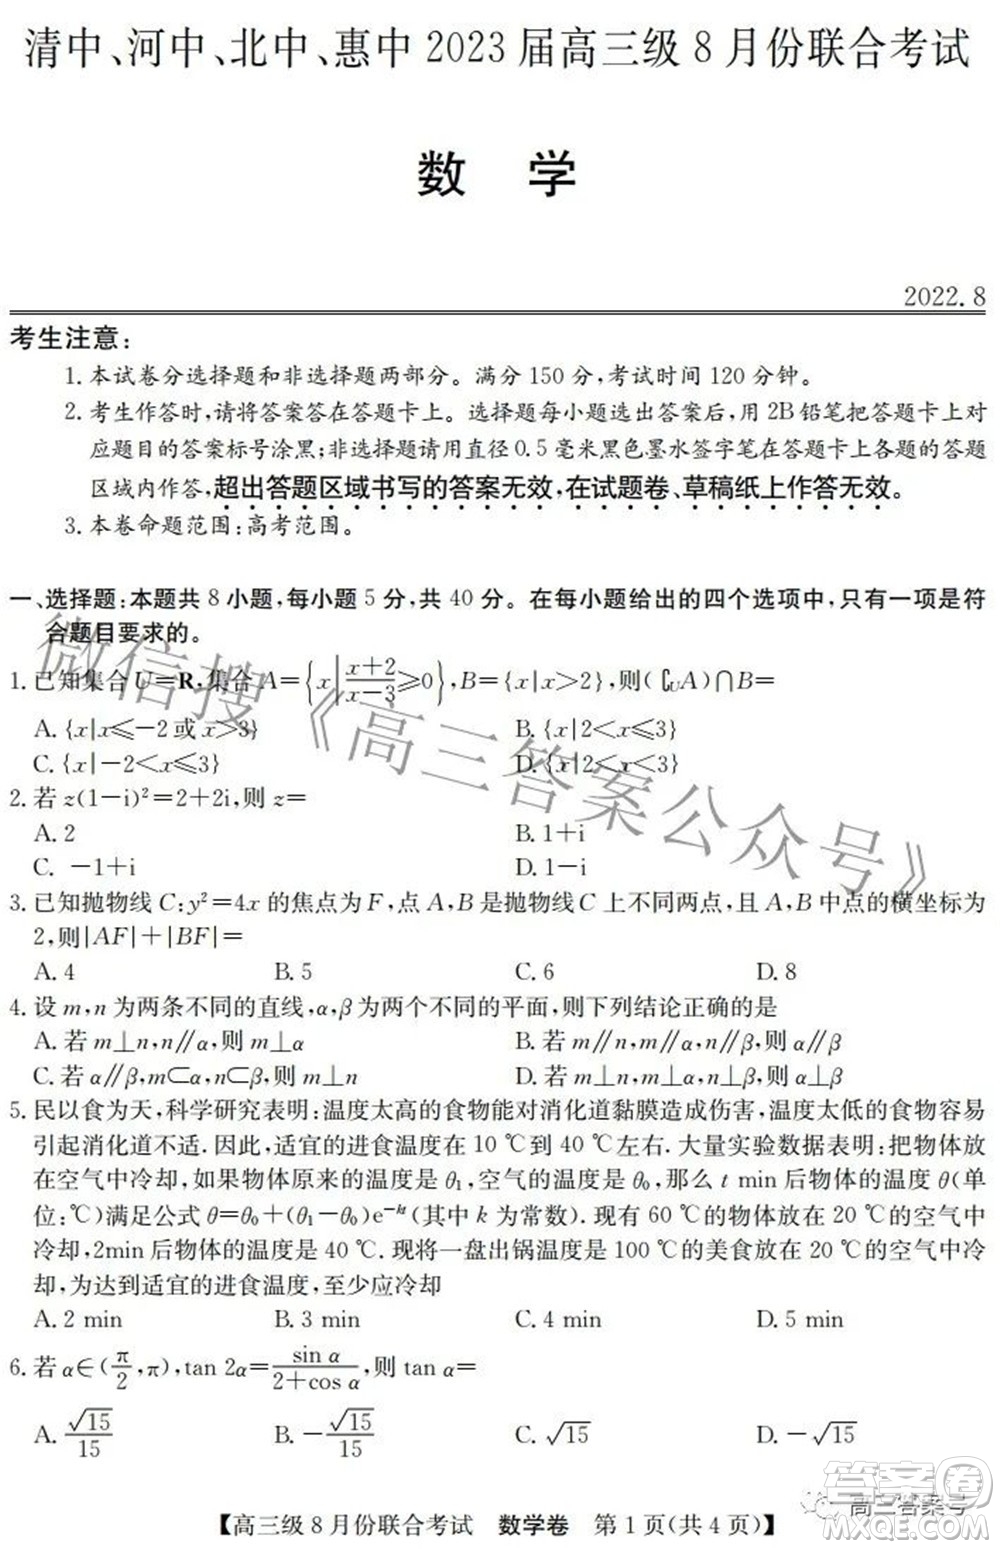 清中、河中、北中、惠中 2023 届高三级 8 月份联合考试
数 学
2022.8
考生注意:
1. 本试卷分选择题和非选择题两部分。满分 150 分,考试时间 120 分钟。
2. 考生作答时,请将答案答在答题卡上。选择题每小题选出答案后,用 2B 铅笔把答题卡上对
应题目的答案标号涂黑;非选择题请用直径 0.5 毫米黑色墨水签字笔在答题卡上各题的答题
区域内作答,超出答题区域书写的答案无效,在试题卷、草稿纸上作答无效。
3. 本卷命题范围:高考范围。
一、选择题:本题共 8 小题,每小题 5 分,共 40 分。在每小题给出的四个选项中,只有一项是符
合题目要求的。
1. 已知集合 U=R,集合 A={x|(x+2)/(x-3)≥0},B={x|x>2},则(∁UA)∩B=
A. {x|x≤-2 或 x>3} B. {x|2<x≤3}
C. {x|-2<x≤3} D. {x|2<x≤3}
2. 若 z(1-i)²=2+2i,则 z=
A. 2 B. 1+i
C. -1+i D. 1-i
3. 已知抛物线 C:y²=4x 的焦点为 F,点 A,B 是抛物线 C 上不同两点,且 A,B 中点的横坐标为
2,则|AF|+|BF|=
A. 4 B. 5 C. 6 D. 8
4. 设 m,n 为两条不同的直线,α,β 为两个不同的平面,则下列结论正确的是
A. 若 m⊥n,n∥α,则 m⊥α B. 若 m∥n,m∥α,n∥β,则 α∥β
C. 若 α∥β,m⊂α,n⊂β,则 m⊥n D. 若 m⊥n,m⊥α,n⊥β,则 α⊥β
5. 民以食为天,科学研究表明:温度太高的食物能对消化道黏膜造成伤害,温度太低的食物容易
引起消化道不适. 因此,适宜的进食温度在 10 ℃到 40 ℃左右. 大量实验数据表明:把物体放
在空气中冷却,如果物体原来的温度是 θ₁,空气的温度是 θ₀,那么 t min 后物体的温度 θ(单
位:℃)满足公式 θ=θ₀+(θ₁-θ₀)e^(-kt)(其中 k 为常数). 现有 60 ℃的物体放在 20 ℃的空气中
冷却,2min后物体的温度是 40 ℃. 现将一盘出锅温度是 100 ℃的美食放在 20 ℃的空气中冷
却,为达到适宜的进食温度,至少应冷却
A. 2 min B. 3 min C. 4 min D. 5 min
6. 若 α∈(π/2,π),tan 2α=sin α/(2+cos α),则 tan α=
A. √15/15 B. -√15/15 C. √15 D. -√15
【高三级 8 月份联合考试 数学卷 第 1 页(共 4 页)】
微信搜《高三答案公众号》
高三答案号
答案卷
MXQE.COM